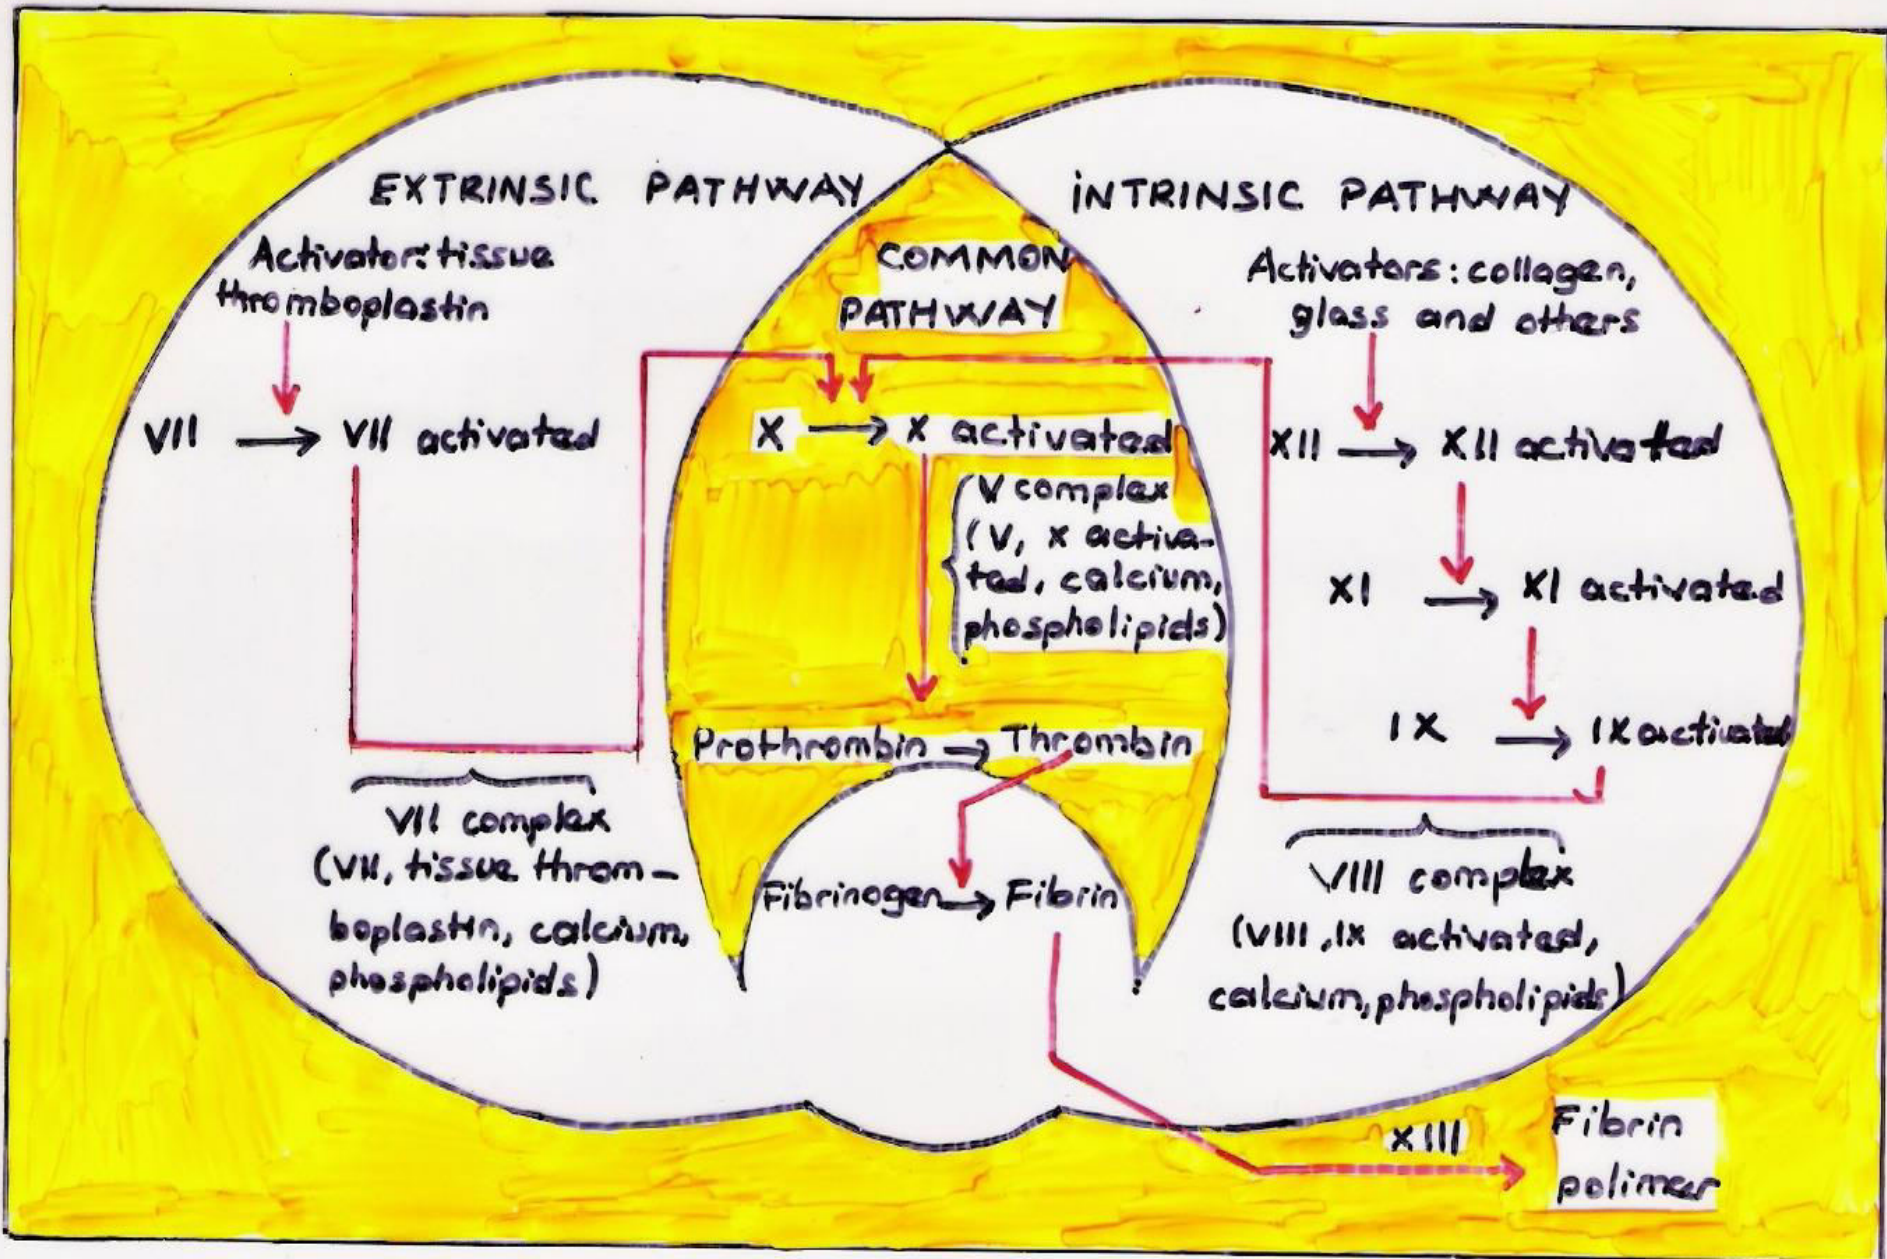 EXTRINSIC PATHWAY
Activator: tissue
thromboplastin
VII → VII activated
VII complex
(VII, tissue throm-
boplastin, calcium,
phospholipids)
COMMON
PATHWAY
X → X activated
V complex
(V, X activa-
ted, calcium,
phospholipids)
Prothrombin → Thrombin
Fibrinogen → Fibrin
INTRINSIC PATHWAY
Activators: collagen,
glass and others
XII → XII activated
XI → XI activated
IX → IX activated
VIII complex
(VIII, IX activated,
calcium, phospholipids)
XIII
Fibrin
polimer